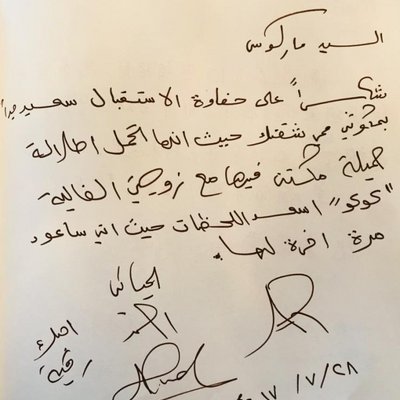 السيد ماركوس
شكراً على حفاوة الاستقبال سعيد جداً
بمكوثي في شقتك حيث انها تحمل اطلالة
جميلة مكثت فيها مع زوجتي الغالية
"كوكو" اسعد اللحظات حيث اني ساعود
مرة اخرى لها.
٢٠١٧/٧/٢٨